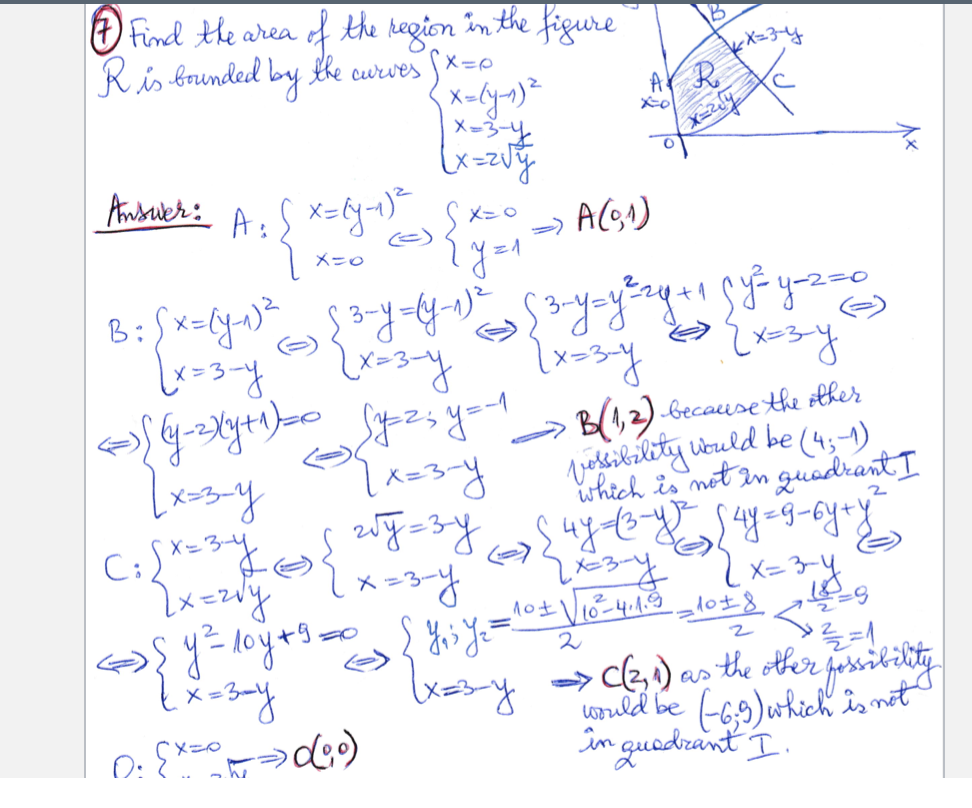 ⑦ Find the area of the region in the figure
R is bounded by the curves { x=0
x=(y-1)²
x=3-y
x=2√y
B
x=3-y
A
x=0
R
C
x=2√y
0
x
Answer: A: { x=(y-1)², x=0 ⇔ { x=0, y=1 ⇒ A(0,1)
B: { x=(y-1)², x=3-y ⇔ { 3-y=(y-1)², x=3-y ⇔ { 3-y=y²-2y+1, x=3-y ⇔ { y²-y-2=0, x=3-y ⇔
⇔ { (y-2)(y+1)=0, x=3-y ⇔ { y=2; y=-1, x=3-y ⇒ B(1,2) because the other
possibility would be (4;-1)
which is not in quadrant I
C: { x=3-y, x=2√y ⇔ { 2√y=3-y, x=3-y ⇔ { 4y=(3-y)², x=3-y ⇔ { 4y=9-6y+y², x=3-y ⇔
⇔ { y²-10y+9=0, x=3-y ⇔ { y₁; y₂ = (10±√(10²-4.1.9))/2 = (10±8)/2 18/2=9, 2/2=1, x=3-y
⇒ C(2,1) as the other possibility
would be (-6;9) which is not
in quadrant I.
O: { x=0 ⇒ O(0;0)